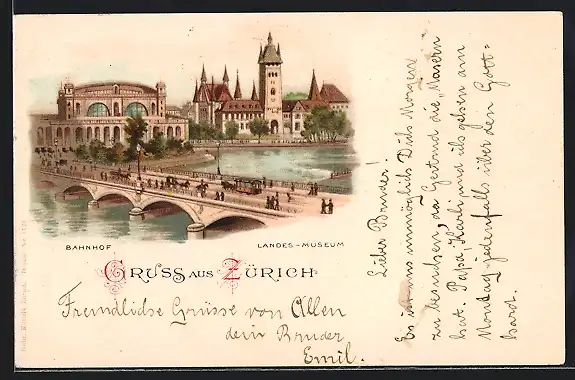 BAHNHOF
LANDES-MUSEUM
GRUSS AUS ZÜRICH
Freundliche Grüsse von Allen
dein Bruder
Emil.
Lieber Bruder!
Es ist uns unmöglich Dich Morgen
zu besuchen, da Gertrud die Masern
hat. Papa, Karli und ich gehen am
Montag jedenfalls über den Gott-
hard.